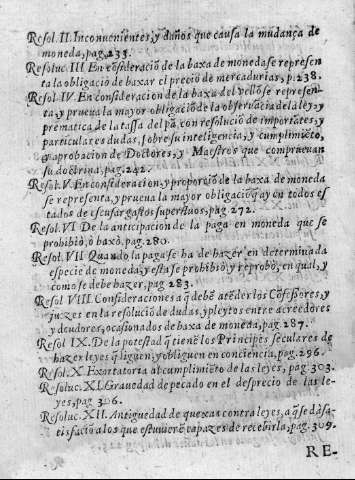 Resol. II. Inconuenientes, y daños que causa la mudança de
moneda, pag. 235.
Resoluc. III. En cõsideraciõ de la baxa de moneda se represen
ta la obligaciõ de baxar el precio de mercadurias, p. 238.
Resol. IV. En consideracion de la baxa del vellõ se represen-
ta, y prueua la mayor obligaciõ de la obseruãcia de la ley, y
prematica de la tassa del pã, con resoluciõ de importãtes, y
particulares dudas, sobre su inteligencia, y cumplimiẽto,
y aprobacion de Doctores, y Maestros que comprueuan
su doctrina, pag. 242.
Resol. V. En consideracion, y proporciõ de la baxa de moneda
se representa, y prueua la mayor obligaciõ q̃ ay en todos es
tados de escusar gastos superfluos, pag. 272.
Resol. VI De la anticipacion de la paga en moneda que se
prohibiò, ò baxò, pag. 280.
Resol. VII Quando la paga se ha de hazer en determinada
especie de moneda, y esta se prohibiò, y reprobò, en qual, y
como se debe hazer, pag 283.
Resol VIII. Consideraciones a q̃ debẽ atẽder los Cõfessores, y
juezes en la resoluciõ de dudas, y pleytos entre acreedores
y deudores, ocasionados de baxa de moneda, pag 287.
Resol IX. De la potestad q̃ tienẽ los Principes seculares de
hazer leyes q̃ liguen, y obliguen en conciencia, pag. 296.
Resol. X. Exortatoria al cumplimiẽto de las leyes, pag. 303.
Resoluc. XI. Grauedad de pecado en el desprecio de las le-
yes, pag 306.
Resoluc. XII. Antiguedad de quexas contra leyes, a q̃ se dà sa-
tisfaciõ a los que estuuierẽ capazes de recebirla, pag. 309.
RE-